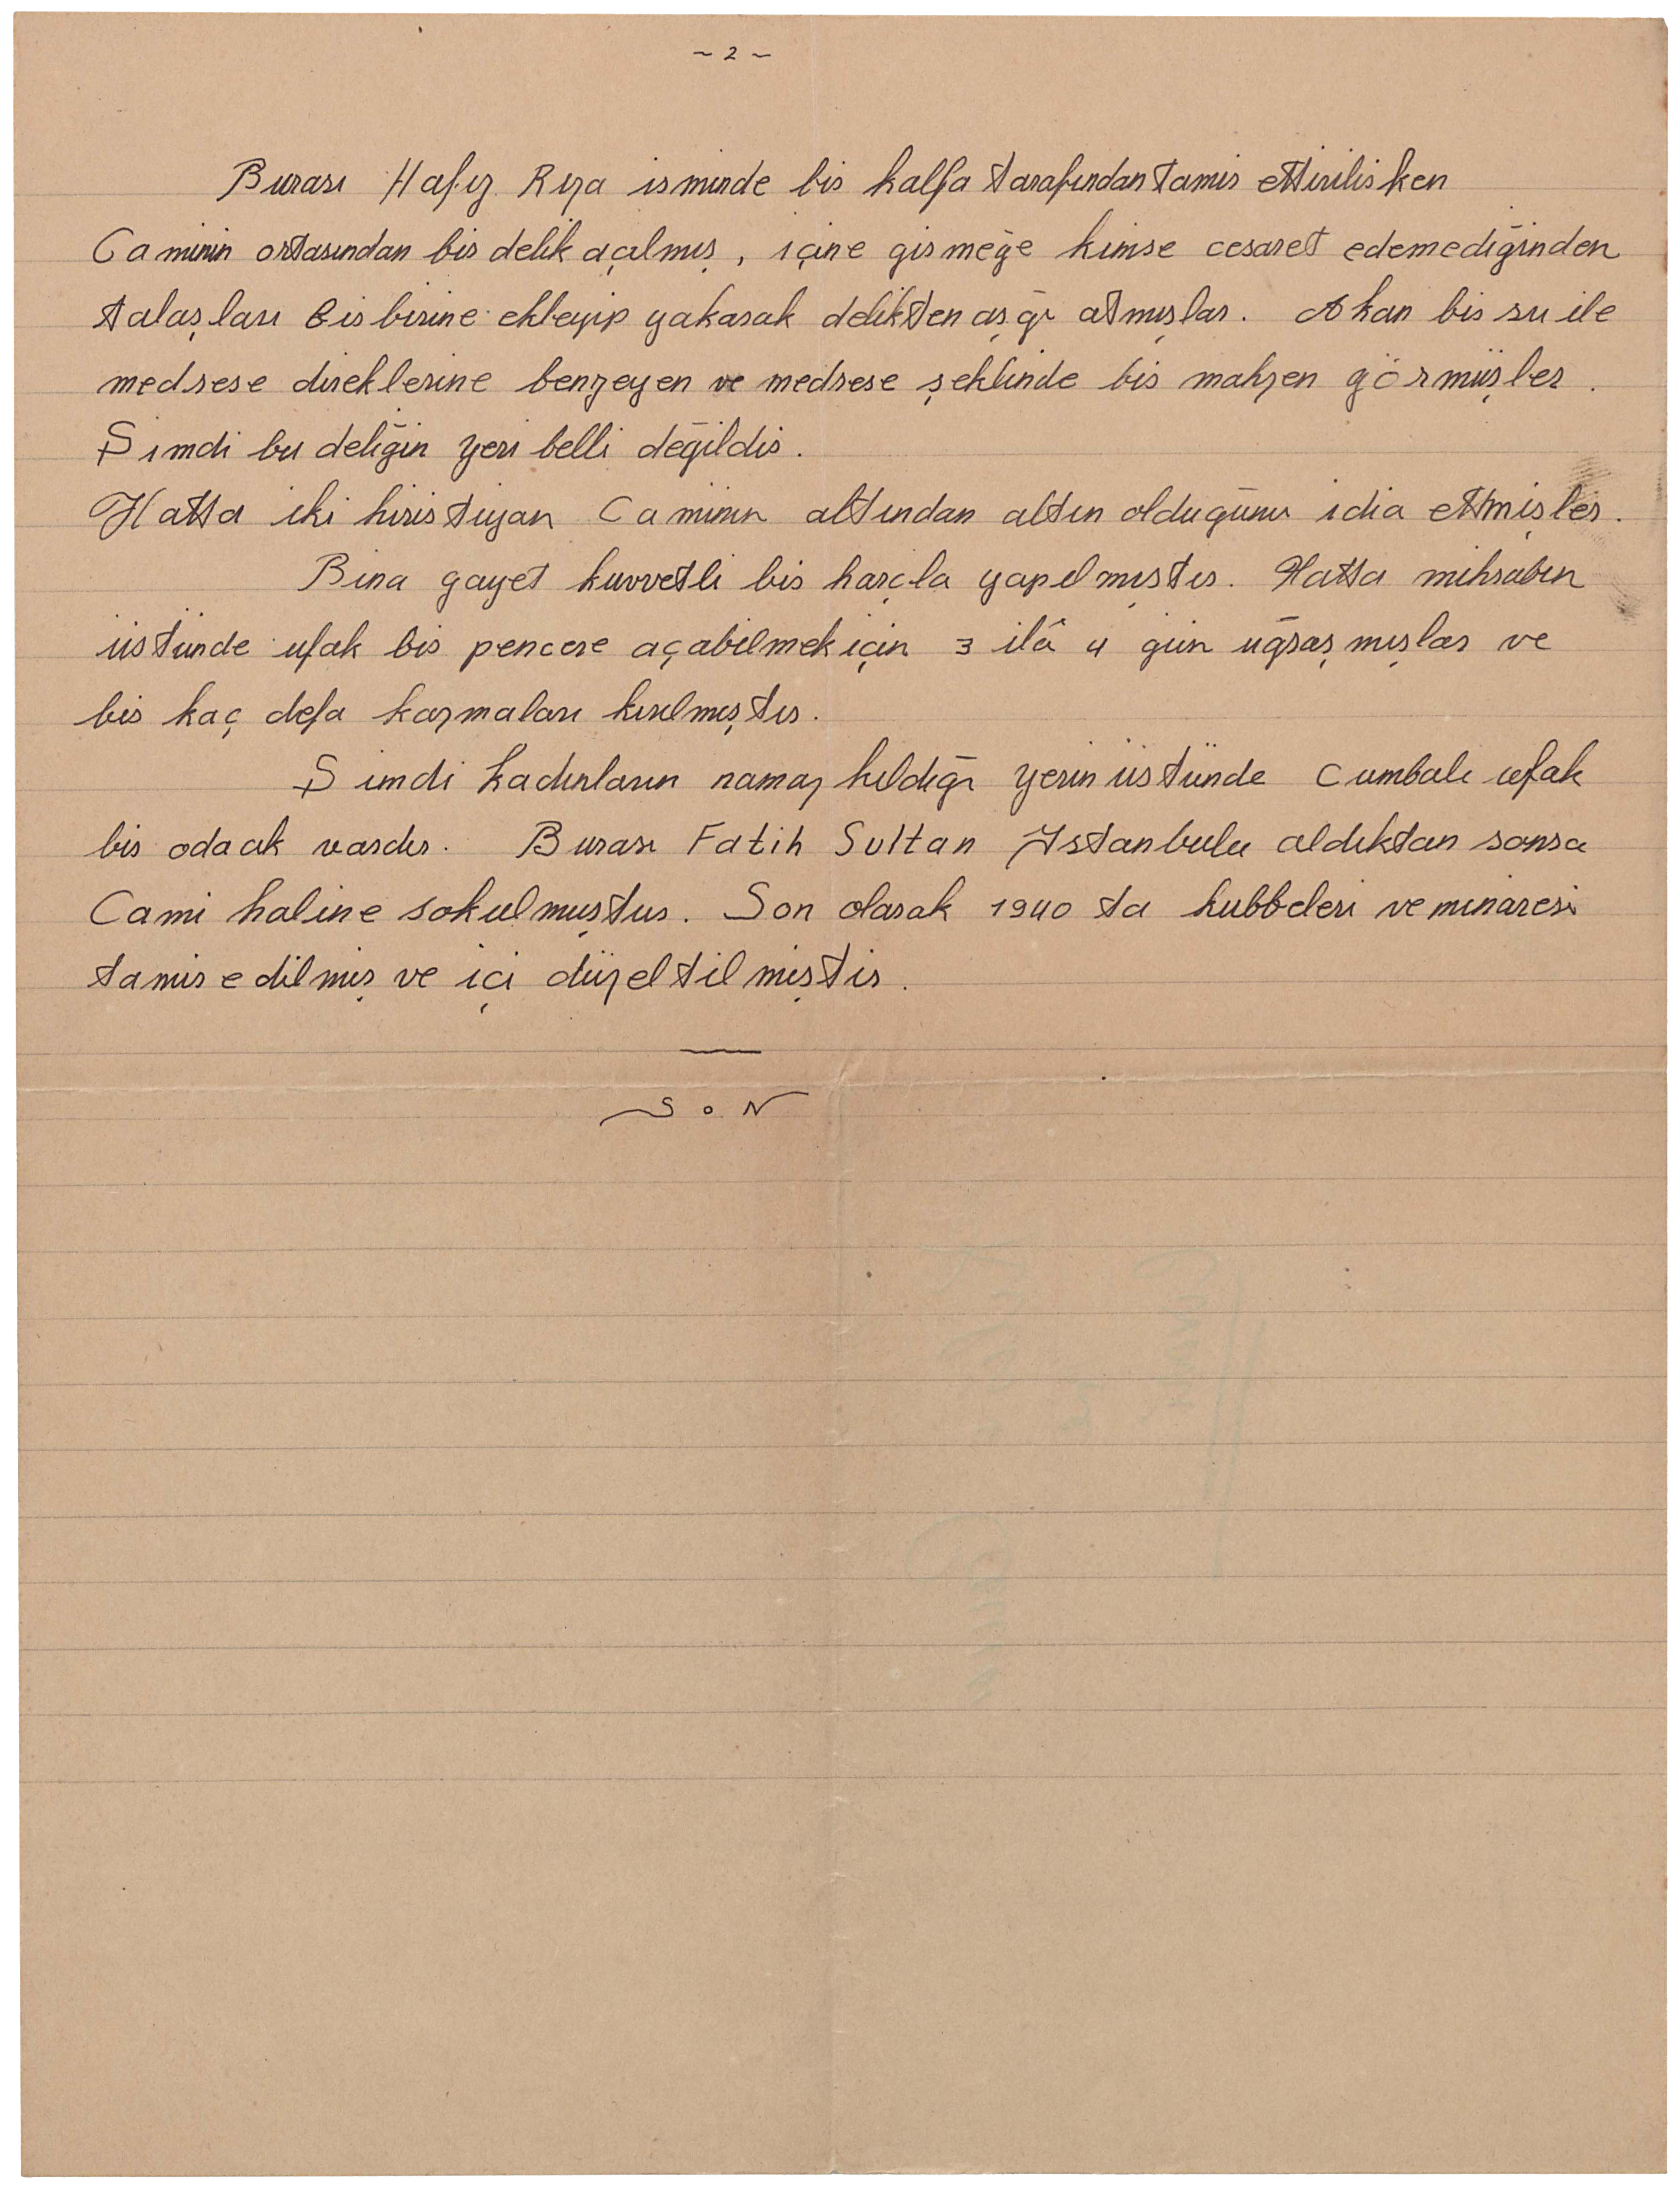 ~ 2 ~
Burası Hafız Rıza isminde bir kalfa tarafından tamir ettirilirken
Caminin ortasından bir delik açılmış, içine girmeğe kimse cesaret edemediğinden
talaşları birbirine ekleyip yakarak delikten aşğı atmışlar. Akan bir su ile
medrese direklerine benzeyen ve medrese şeklinde bir mahzen görmüşler.
Şimdi bu deliğin yeri belli değildir.
Hatta iki hiristiyan Caminin altından altın olduğunu idia etmişler.
Bina gayet kuvvetli bir harçla yapılmıştır. Hatta mihrabın
üstünde ufak bir pencere açabilmek için 3 ilâ 4 gün uğraşmışlar ve
bir kaç defa kazmaları kırılmıştır.
Şimdi kadınların namaz kıldığı yerin üstünde cumbalı ufak
bir odacık vardır. Burası Fatih Sultan İstanbulu aldıktan sonra
Cami haline sokulmuştur. Son olarak 1940 ta kubbeleri ve minaresi
tamir edilmiş ve içi düzeltilmiştir.
SON